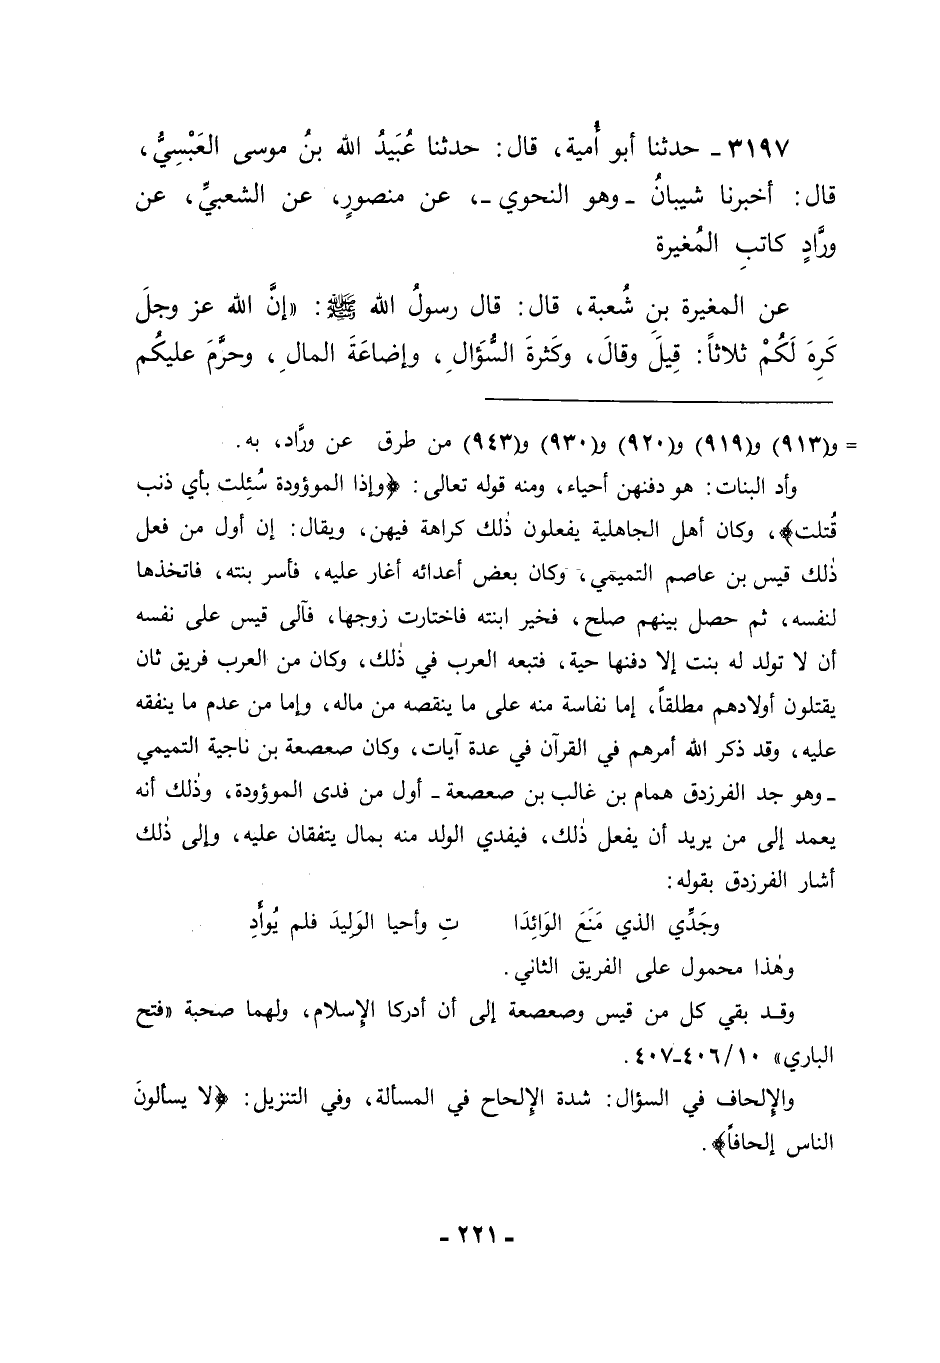 ٣١٩٧ ـ حدثنا أبو أُمية، قال: حدثنا عُبَيدُ الله بنُ موسى العَبْسِيُّ،
قال: أخبرنا شيبانُ ـ وهو النحوي ـ، عن منصورٍ، عن الشعبيِّ، عن
ورَّادٍ كاتبِ المُغيرة
عن المغيرة بنِ شُعبة، قال: قال رسولُ الله ﷺ: «إنَّ الله عز وجلَ
كَرِهَ لَكُمْ ثلاثاً: قِيلَ وقالَ، وكَثرةَ السُّؤَالِ، وإضاعَةَ المالِ، وحرَّمَ عليكُم
= و(٩١٣) و(٩١٩) و(٩٢٠) و(٩٣٠) و(٩٤٣) من طرق عن ورَّاد، به.
وأد البنات: هو دفنهن أحياء، ومنه قوله تعالى: ﴿وإذا الموؤودة سُئِلت بأي ذنب
قُتلت﴾، وكان أهل الجاهلية يفعلون ذٰلك كراهة فيهن، ويقال: إن أول من فعل
ذٰلك قيس بن عاصم التميمي، وكان بعض أعدائه أغار عليه، فأسر بنته، فاتخذها
لنفسه، ثم حصل بينهم صلح، فخير ابنته فاختارت زوجها، فآلى قيس على نفسه
أن لا تولد له بنت إلا دفنها حية، فتبعه العرب في ذٰلك، وكان من العرب فريق ثان
يقتلون أولادهم مطلقاً، إما نفاسة منه على ما ينقصه من ماله، وإما من عدم ما ينفقه
عليه، وقد ذكر الله أمرهم في القرآن في عدة آيات، وكان صعصعة بن ناجية التميمي
ـ وهو جد الفرزدق همام بن غالب بن صعصعة ـ أول من فدى الموؤودة، وذٰلك أنه
يعمد إلى من يريد أن يفعل ذٰلك، فيفدي الولد منه بمال يتفقان عليه، وإلى ذٰلك
أشار الفرزدق بقوله:
وجَدِّي الذي مَنَعَ الوَائِدَا تِ وأحيا الوَلِيدَ فلم يُوأَدِ
وهٰذا محمول على الفريق الثاني.
وقد بقي كل من قيس وصعصعة إلى أن أدركا الإسلام، ولهما صحبة «فتح
الباري» ٤٠٦/١٠-٤٠٧.
والإلحاف في السؤال: شدة الإلحاح في المسألة، وفي التنزيل: ﴿لا يسألونَ
الناس إلحافاً﴾.
ـ ٢٢١ ـ